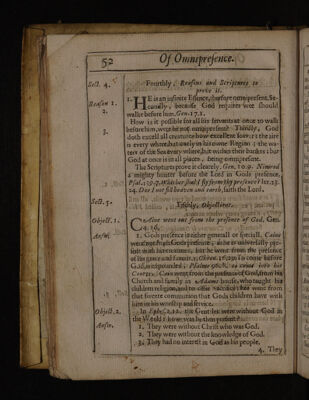 52
Of Omnipresence.
Sect. 4.
Fourthly, Reasons and Scriptures to
prove it.
Reason 1.
1. HE is an infinite Essence, therfore omnipresent. Se-
2.
condly, because God requires wee should
walke before him. Gen. 17. 1.
How is it possible for all his servants at once to walk
before him, were he not omnipresent? Thirdly, God
3.
doth excell all creatures how excellent soever: the aire
is every where, but onely in his owne Region; the wa-
ters of the Sea every where, but within their bankes: but
God at once is in all places, being omnipresent.
The Scriptures prove it clearely. Gen. 10. 9. Nimrod
a mighty hunter before the Lord in Gods presence,
Psal. 139. 7. Whither shall I fly from thy presence? Ier. 23.
24. Doe I not fill heaven and earth, saith the Lord.
Sect. 5.
Fifthly, Objections.
Object. 1.
CAine went out from the presence of God. Gen.
4. 16.
Answ.
1. Gods presence is either generall or speciall. Caine
went not from Gods presence, as he is universally pre-
sent with his creatures, but he went from the presence
of his grace and favour,
God,
Courts: Cain went from the presence of God, from his
Church and family in Adams house, who taught his
children religion, and to offer sacrifice: hee went from
that sweete communion that Gods children have with
him in his worship and service.
Object. 2.
In Ephe. 2. 12. the Gentiles were without God in
the World: how was he then present?
Answ.
1. They were without Christ who was God.
2. They were without the knowledge of God.
3. They had no interest in God as his people.
4. They